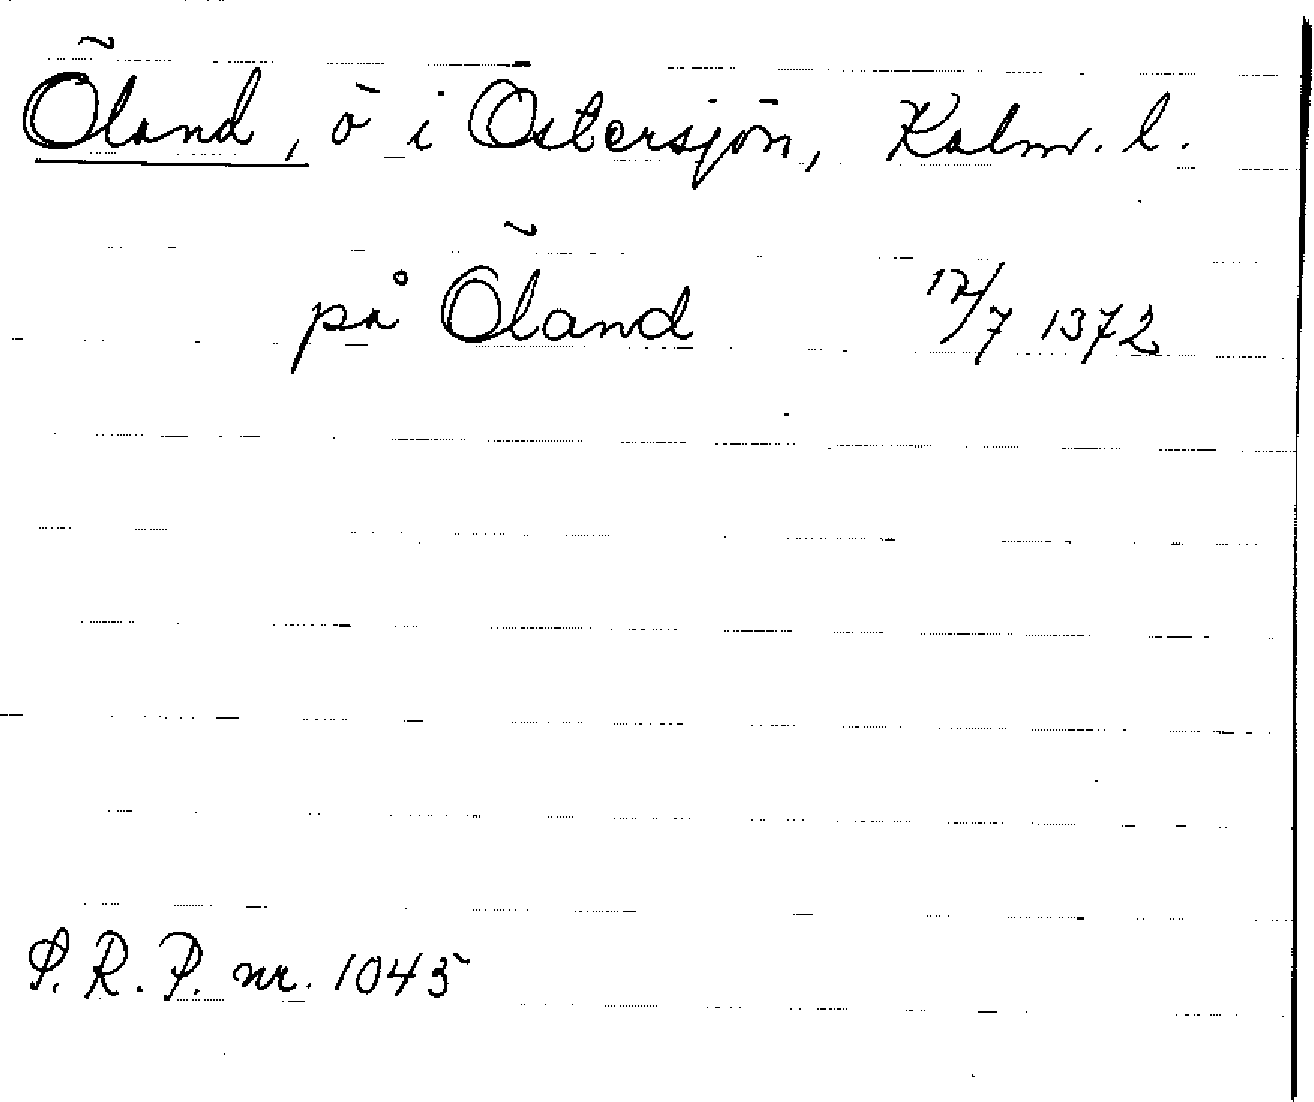 Öland, ö i Östersjön, Kalm. l.
på Öland 12/7 1372
S.R.P. nr. 1045